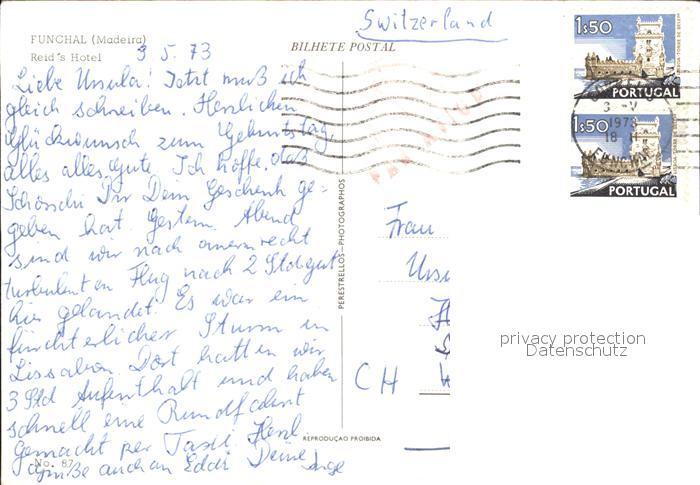 FUNCHAL (Madeira)
Reid's Hotel
3 5. 73
Liebe Ursula! Jetzt muß ich
gleich schreiben. Herzlichen
Glückwunsch zum Geburtstag,
alles alles Gute. Ich hoffe, daß
Dir Dein Geschenk ge=
geben hat. Gestern Abend
sind wir nach einem recht
turbulenten Flug nach 2 Std gut
hier gelandet. Es war ein
fürchterlicher Sturm in
Lissabon. Dort hatten wir
3 Std Aufenthalt und haben
schnell eine Rundfahrt
gemacht per Taxi. Herzl
Grüße auch an Eddi Deine Inge
No. 87
BILHETE POSTAL
PERESTRELLOS—PHOTOGRAPHOS
REPRODUÇÃO PROIBIDA
Switzerland
PAR AVION
1$50
PORTUGAL
3 - V
1973
18 H
FUNCHAL
1$50
PORTUGAL
Frau
Ursu
CH
privacy protection
Datenschutz